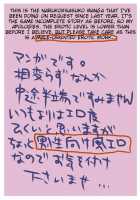 THIS IS THE NARUKOXSASUKO MANGA THAT I'VE
BEEN DOING ON REQUEST SINCE LAST YEAR. IT'S
THE SAME INCOMPLETE STORY AS BEFORE, SO MY
APOLOGIES. THE EROTIC LEVEL IS LOWER THAN
BEFORE I BELIEVE, BUT PLEASE TAKE CARE AS THIS
IS A MALE-ORIENTED EROTIC WORK.
マンガです。
相変らずなんか
中途半端ですみません
いきなり
ひくいと思いますが
男性向け
なのでお気を付け
下さいませ…